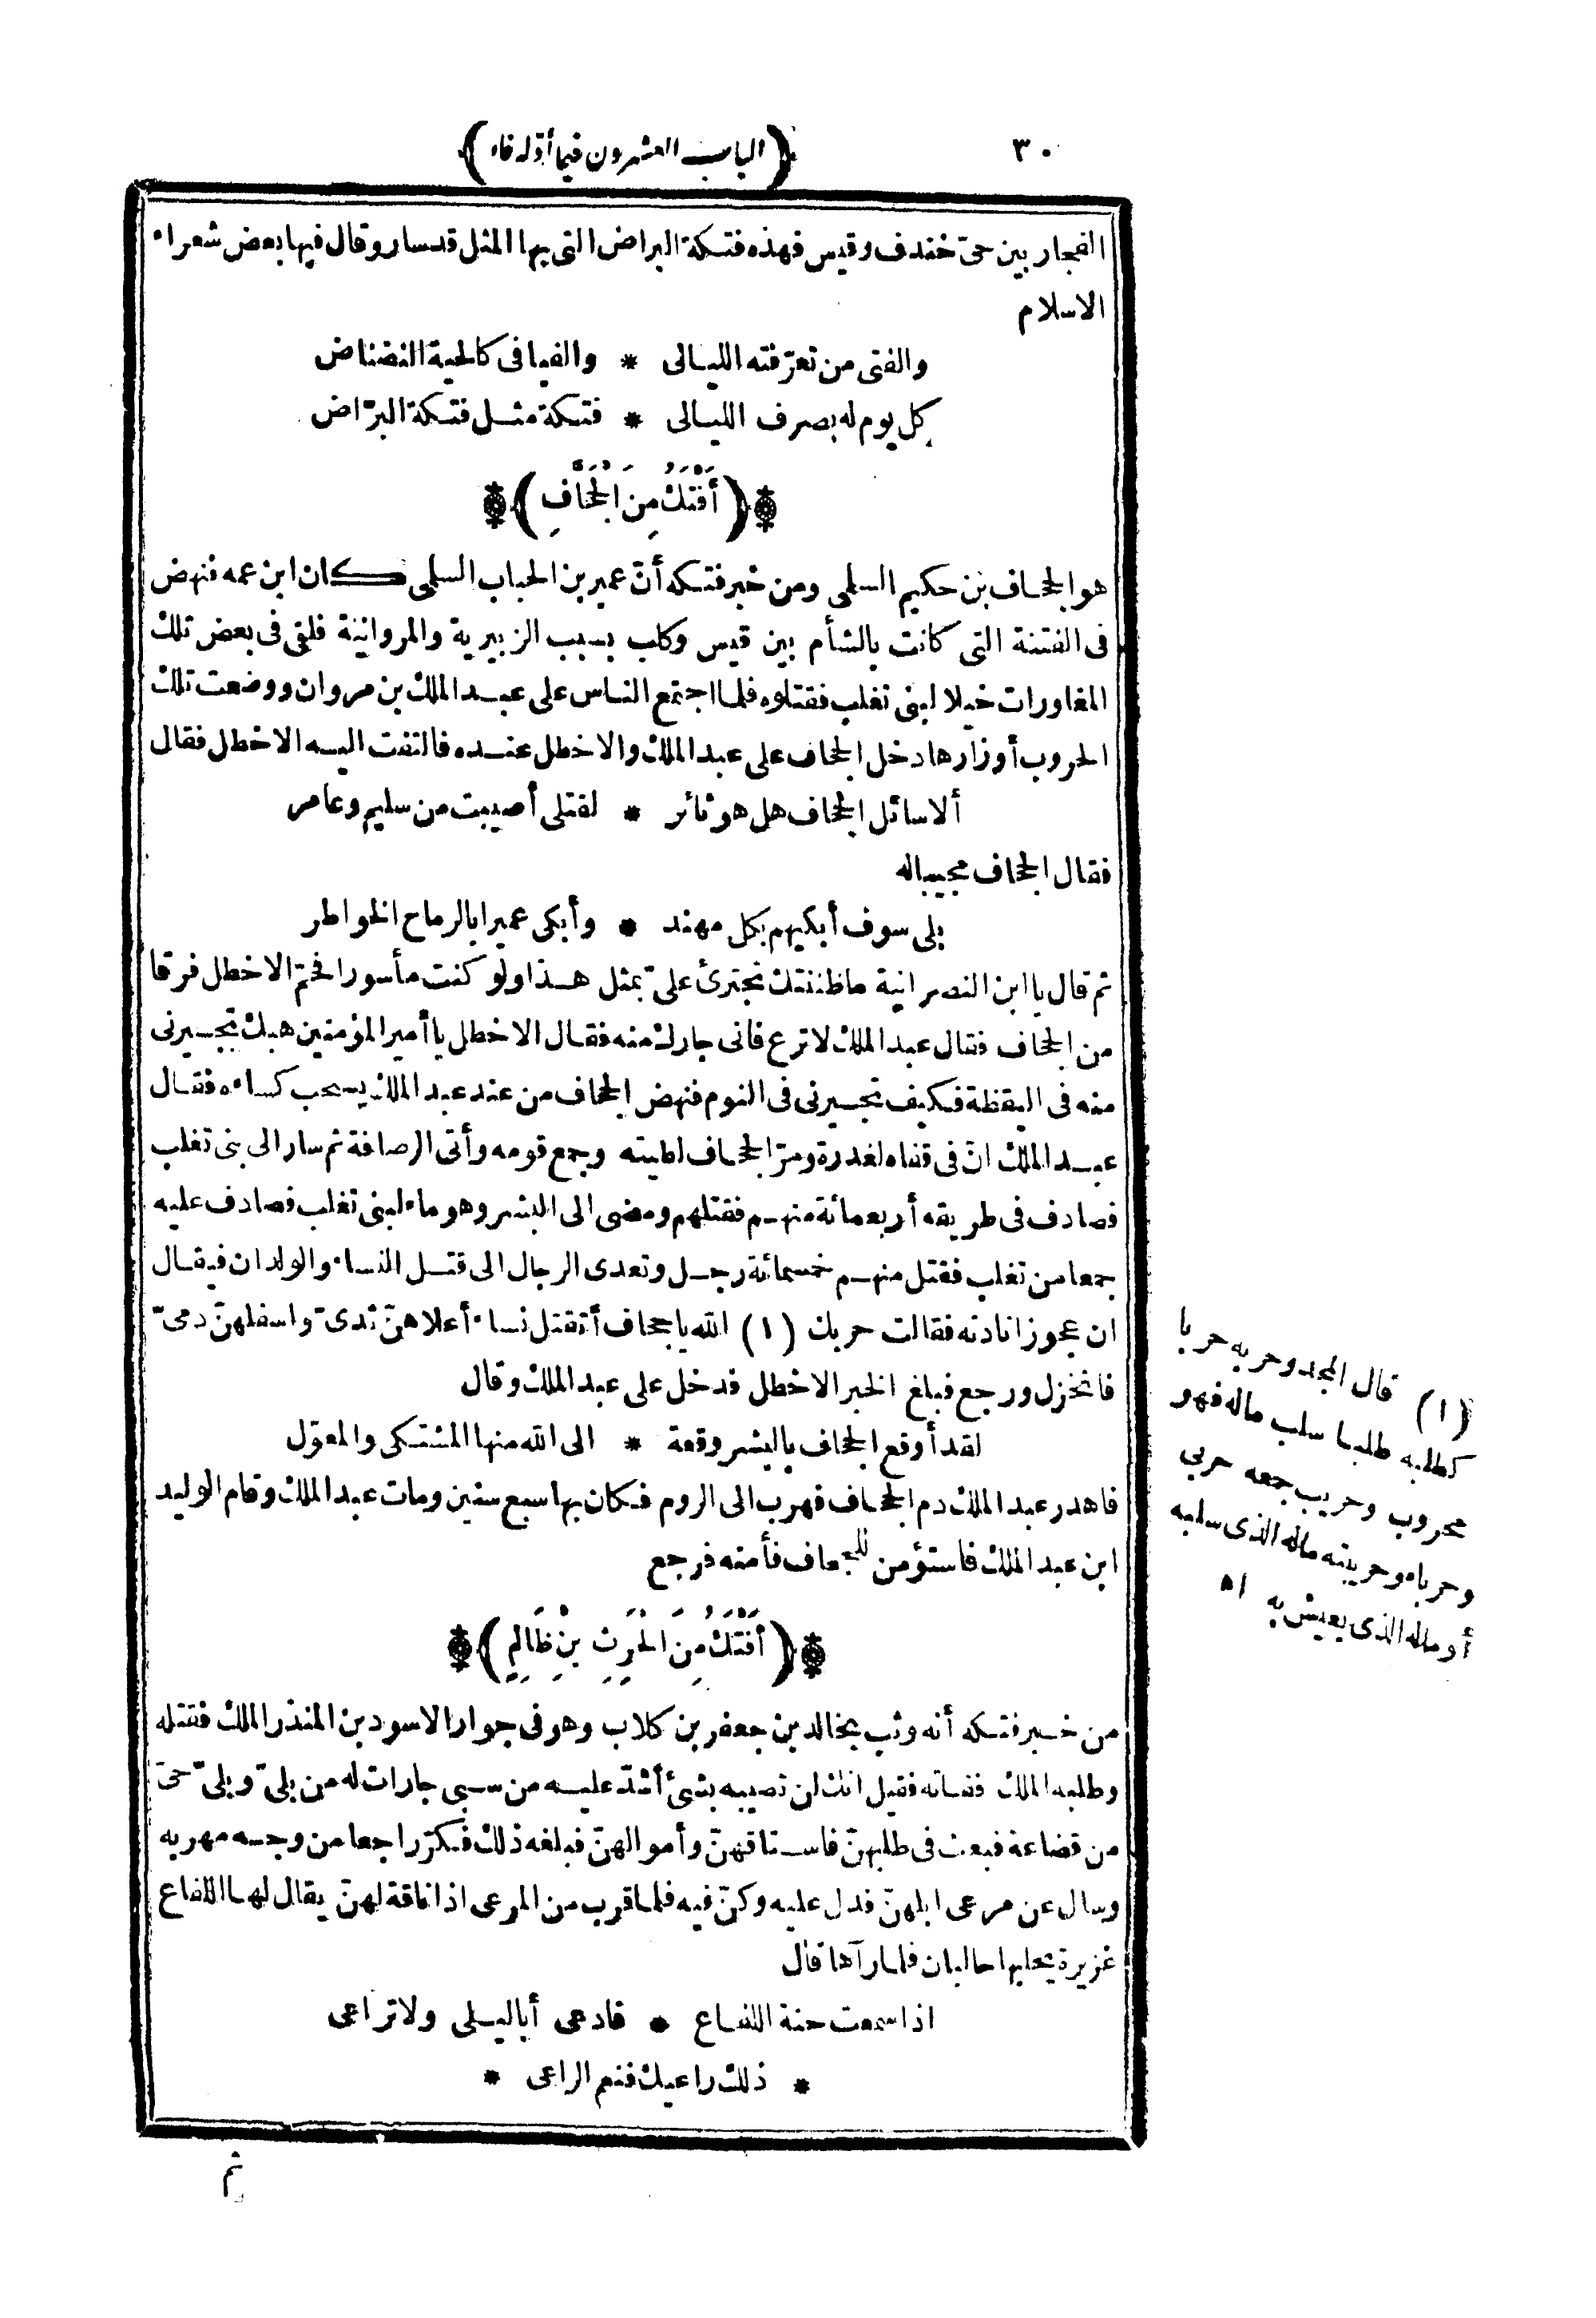 ٣٠
(الباب العشرون فيما أوّله فاء)
الفجار بين حيّ خندف وقيس فهذه فتكة البراض التي بها المثل قد سار وقال فيها بعض شعراء
الاسلام
والفتى من تعرّفته الليالى * والفيافى كالحية النضناض
كل يوم له بصرف الليالى * فتكة مثل فتكة البرّاض
(أَفْتَكُ مِنَ الجَحَّافِ)
هو الجحاف بن حكيم السلمى ومن خبر فتكه أنّ عمير بن الحباب السلمى كان ابن عمه فنهض
فى الفتنة التى كانت بالشأم بين قيس وكلب بسبب الزبيرية والمروانية فلقى فى بعض تلك
المغاورات خيلا لبنى تغلب فقتلوه فلما اجتمع الناس على عبد الملك بن مروان ووضعت تلك
الحروب أوزارها دخل الجحاف على عبد الملك والاخطل عنده فالتفت اليه الاخطل فقال
ألا سائل الجحاف هل هو ثائر * لقتلى أصيبت من سليم وعامر
فقال الجحاف مجيبا له
بلى سوف أبكيهم بكل مهند * وأبكى عميرا بالرماح الخواطر
ثم قال يا ابن النصرانية ما ظننتك تجترئ علىّ بمثل هذا ولو كنت مأسورا فحمّ الاخطل فرقا
من الجحاف فقال عبد الملك لا ترع فانى جارك منه فقال الاخطل يا أمير المؤمنين هبك تجيرنى
منه فى اليقظة فكيف تجيرنى فى النوم فنهض الجحاف من عند عبد الملك يسحب كساءه فقال
عبد الملك انّ فى قفاه لغدرة ومرّ الجحاف لطيته وجمع قومه وأتى الرصافة ثم سار الى بنى تغلب
فصادف فى طريقه أربعمائة منهم فقتلهم ومضى الى البشر وهو ماء لبنى تغلب فصادف عليه
جمعا من تغلب فقتل منهم خمسمائة رجل وتعدى الرجال الى قتل النساء والولدان فيقال
ان عجوزا نادته فقالت حربك (١) الله يا جحاف أتقتل نساء أعلاهنّ ثدىّ واسفلهنّ دمىّ
فانخزل ورجع فبلغ الخبر الاخطل فدخل على عبد الملك وقال
لقد أوقع الجحاف بالبشر وقعة * الى الله منها المشتكى والمعوّل
فاهدر عبد الملك دم الجحاف فهرب الى الروم فكان بها سبع سنين ومات عبد الملك وقام الوليد
ابن عبد الملك فاستؤمن للجحاف فأمنه فرجع
(أَفْتَكُ مِنَ الحَرِثِ بْنِ ظَالِمٍ)
من خبر فتكه أنه وثب بخالد بن جعفر بن كلاب وهو فى جوار الاسود بن المنذر الملك فقتله
وطلبه الملك ففاته فقيل انك لن تصيبه بشئ أشدّ عليه من سبى جارات له من بلىّ وبلىّ حىّ
من قضاعة فبعث فى طلبهنّ فاستاقهنّ وأموالهنّ فبلغه ذلك فكرّ راجعا من وجه مهربه
وسال عن مرعى ابلهنّ فدل عليه وكنّ فيه فلما قرب من المرعى اذا ناقة لهنّ يقال لها اللفاع
غزيرة يحلبها حالبان فلما رآها قال
اذا سمعت حنة اللفاع * فادعى أبا ليلى ولا تراعى
* ذلك راعيك فنعم الراعى *
ثم
(١) قال المجد وحربه حربا
كطلبه طلبا سلب ماله فهو
محروب وحريب جمعه حربى
وحرباء وحريبته ماله الذى سلبه
أو ماله الذى يعيش به اه